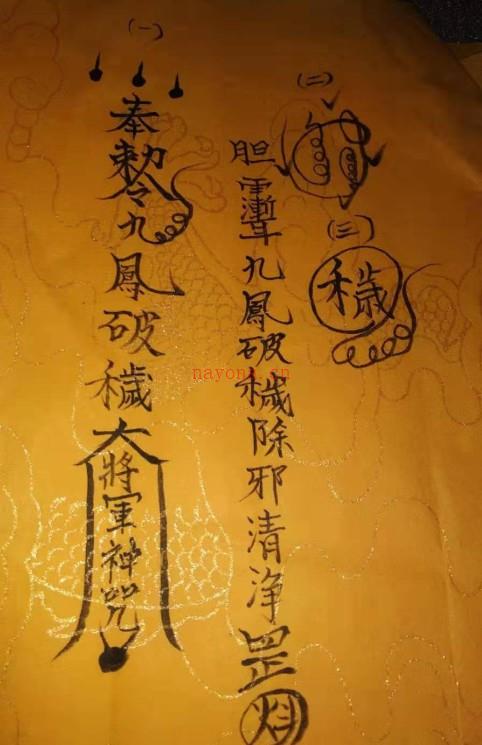 (一)
奉勅令九鳳破穢大將軍神咒
(二)
九鳳破穢除邪清净罡
(三)
穢
nayona.cn